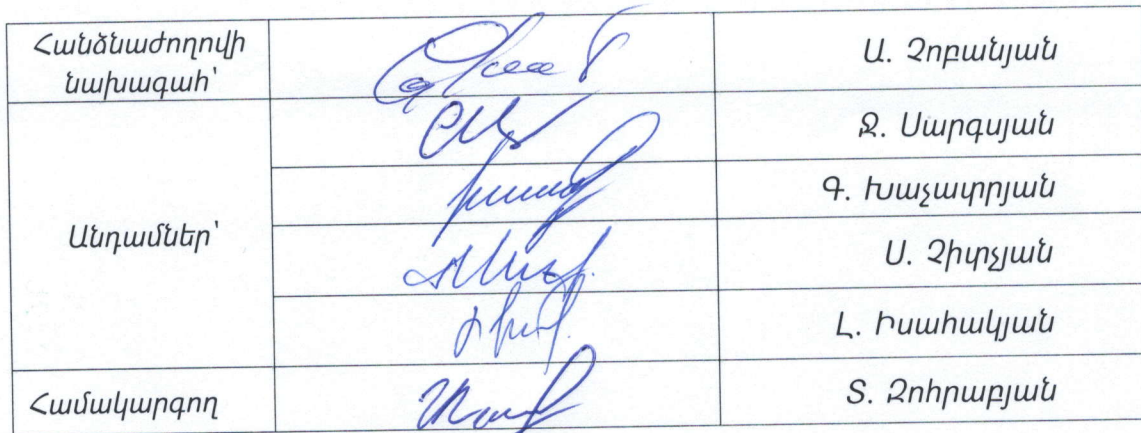 Հանձնաժողովի
նախագահ՝
Ա. Չոբանյան
Ջ. Սարգսյան
Գ. Խաչատրյան
Անդամներ՝
Ս. Չիտչյան
Լ. Իսահակյան
Համակարգող
Տ. Զոհրաբյան